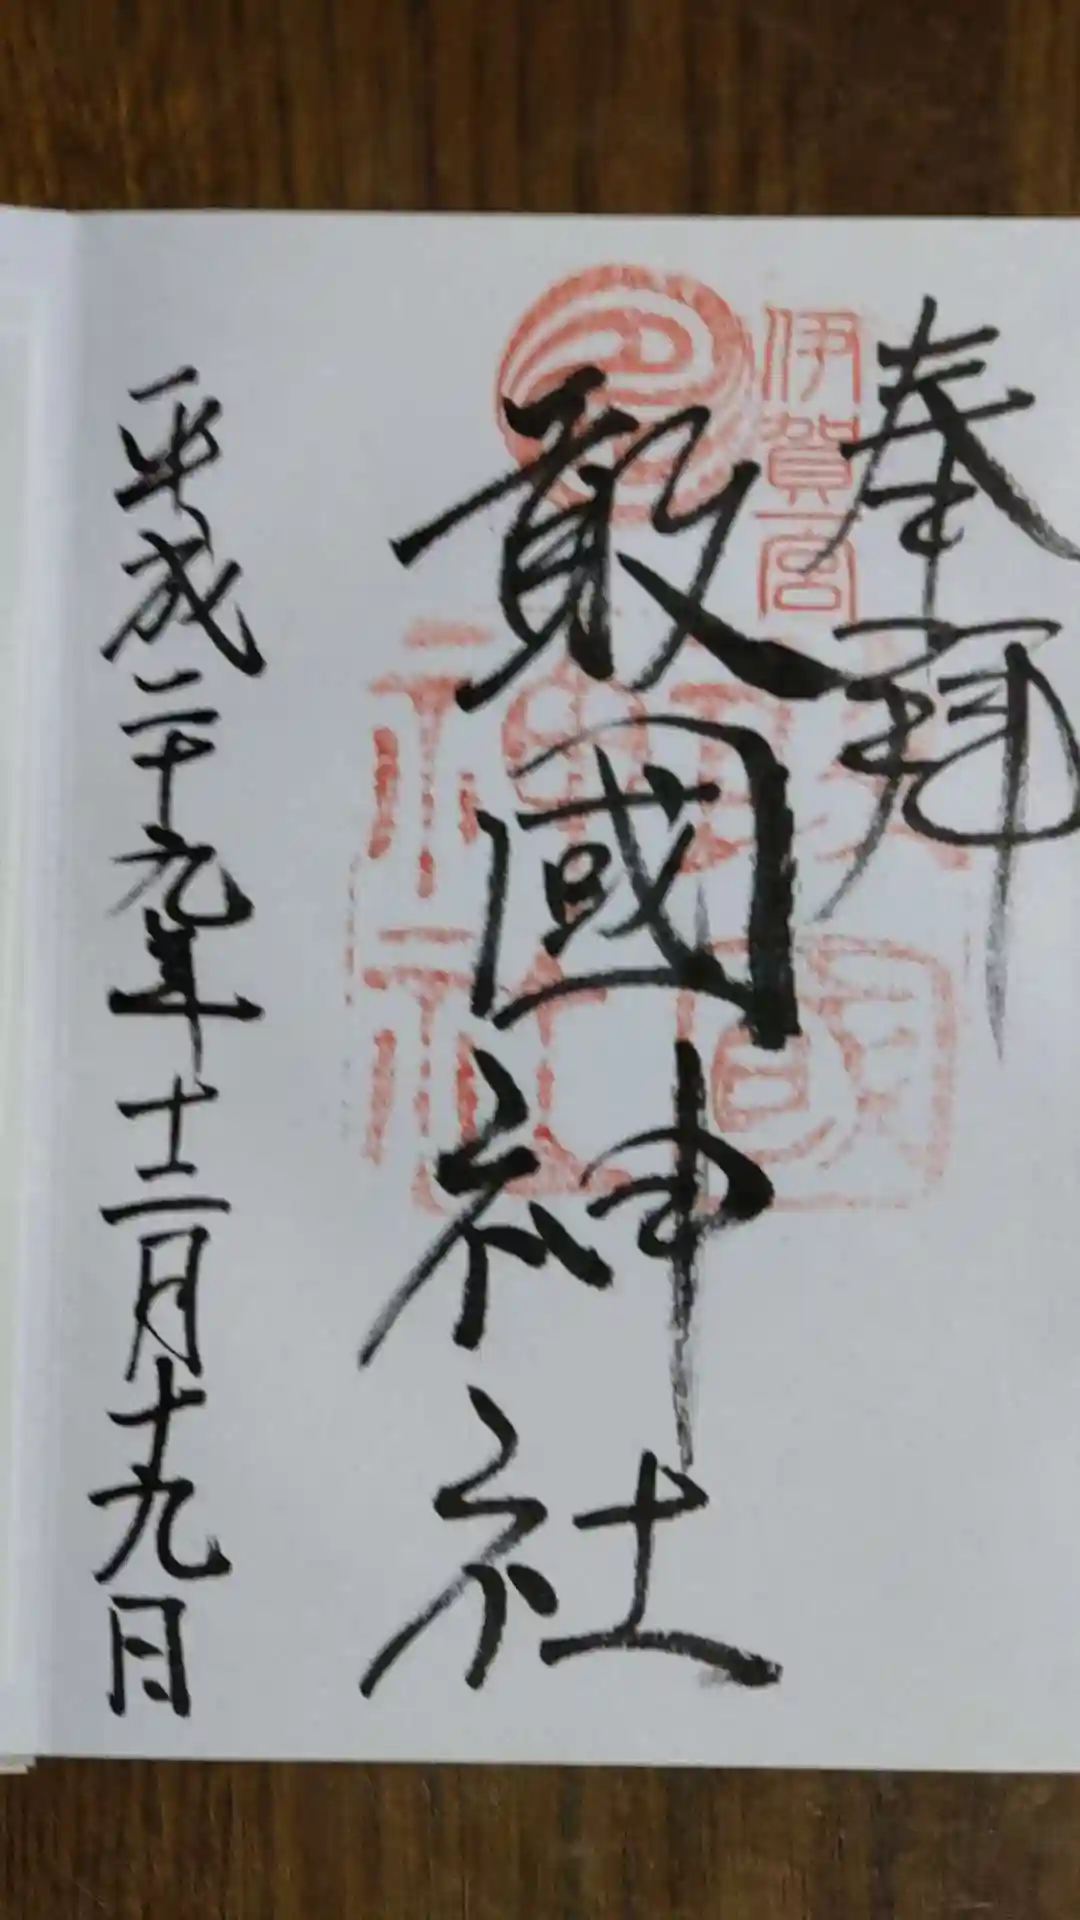 奉拝
伊賀一宮
敢國神社
敢國神社
平成二十九年十二月十九日